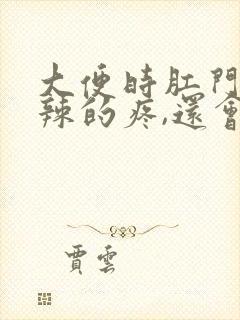 大便時肛門
辣的疼,還會
賈雲